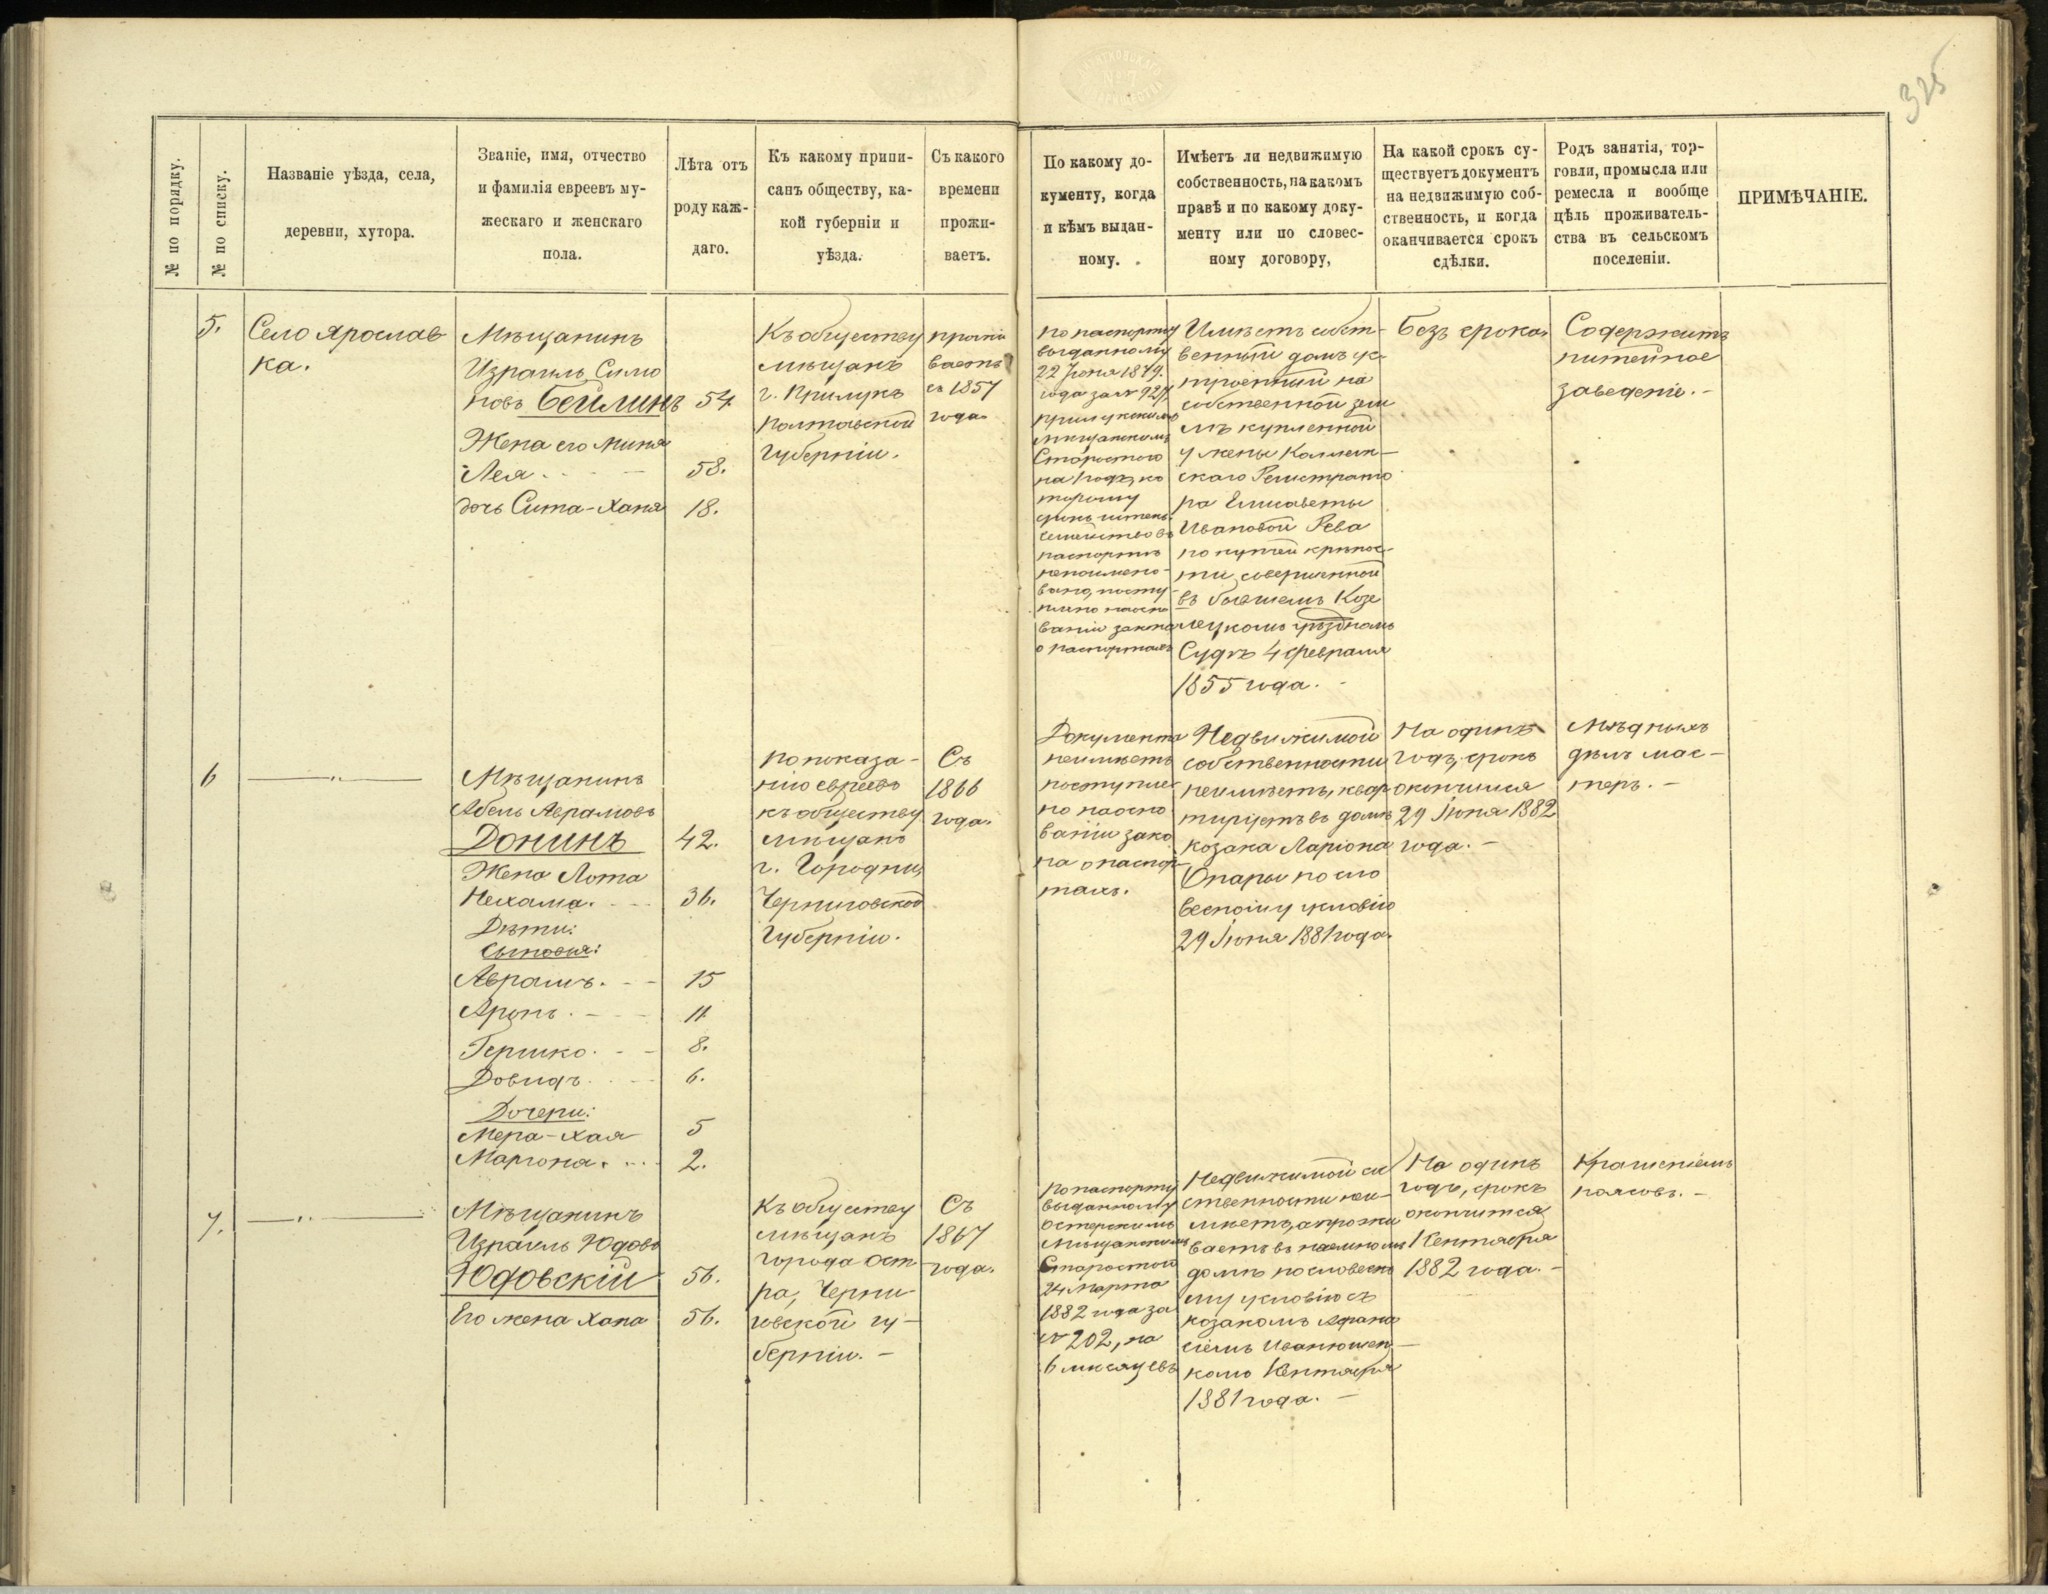 325
№ по порядку.
№ по списку.
Названіе уѣзда, села,
деревни, хутора.
Званіе, имя, отчество
и фамилія евреевъ му-
жескаго и женскаго
пола.
Лѣта отъ
роду каж-
даго.
Къ какому припи-
санъ обществу, ка-
кой губерніи и
уѣзда.
Съ какого
времени
прожи-
ваетъ.
По какому до-
кументу, когда
и кѣмъ выдан-
ному.
Имѣетъ ли недвижимую
собственность, на какомъ
правѣ и по какому доку-
менту или по словес-
ному договору,
На какой срокъ су-
ществуетъ документъ
на недвижимую соб-
ственность, и когда
оканчивается срокъ
сдѣлки.
Родъ занятія, тор-
говли, промысла или
ремесла и вообще
цѣль проживатель-
ства въ сельскомъ
поселеніи.
ПРИМѢЧАНІЕ.
5.
Село Ярослав
ка.
Мѣщанинъ
Израиль Симо
новъ Бейлинъ
54
Жена его Миня
Лея. - -
58.
дочь Сита-Хана
18.
Къ обществу
мѣщанъ
г. Прилукъ
Полтавской
Губерніи.
прожи
ваетъ
съ 1857
года
По паспорту
выданному
22 Іюня 1879.
года за №
Прилукскимъ
Мѣщанскимъ
Старостою
на годъ, ко
торому
срокъ истекъ.
семейство въ
паспортѣ
непоимено-
вано, посту-
плено наосно
ваніи закона
о паспортахъ
Имѣетъ собст-
венный домъ ус-
троенный на
собственной зем
лѣ купленной
у жены Коллеж-
скаго Регистрато
ра Елисаветы
Ивановой Рева
по купчей крѣпос-
ти совершенной
въ бывшемъ Козе
лецкомъ уѣздномъ
Судѣ 4 февраля
1855 года. -
Безъ срока.
Содержитъ
питейное
заведеніе. -
6
— " —
Мѣщанинъ
Абель Аврамовъ
Донинъ
42.
Жена Лота
Нехама. - -
36.
Дѣти:
Сыновья:
Аврамъ. - -
15
Аронъ. - -
11
Гершко. - -
8.
Довидъ. - -
6.
Дочери:
Мера-Хая
5
Марьяна. - -
2.
По показа-
нію евреевъ
къ обществу
мѣщанъ
г. Городни,
Черниговской
Губерніи.
Съ
1866
года.
Документа
неимѣетъ
поступле
но наосно
ваніи зако
на о паспор-
тахъ.
Недвижимой
собственности
неимѣетъ, квар
тируетъ въ домѣ
козака Ларіона
Опары посло
весному условію
29 Іюня 1881 года.
На одинъ
годъ, срокъ
окончился
29 Іюня 1882
года. -
Мѣдныхъ
дѣлъ мас-
теръ. -
7.
— " —
Мѣщанинъ
Израиль Юдовъ
Юдовскій
56.
Его жена Хана
56.
Къ обществу
мѣщанъ
города Ост
ра, Черни
говской гу-
берніи. -
Съ
1867
года.
По паспорту
выданному
Остерскимъ
Мѣщанскимъ
Старостой
24 Марта
1882 года за
№ 202, на
6 мѣсяцевъ
Недвижимой со
ственности неи-
мѣетъ, а прожи
ваетъ въ наемномъ
домѣ по словесно
му условію съ
козакомъ Афана
сіемъ Иванюшен-
комъ Сентября
1881 года. -
На одинъ
годъ, срокъ
окончится
1 Сентября
1882 года. -
Крашеніемъ
поясовъ. -